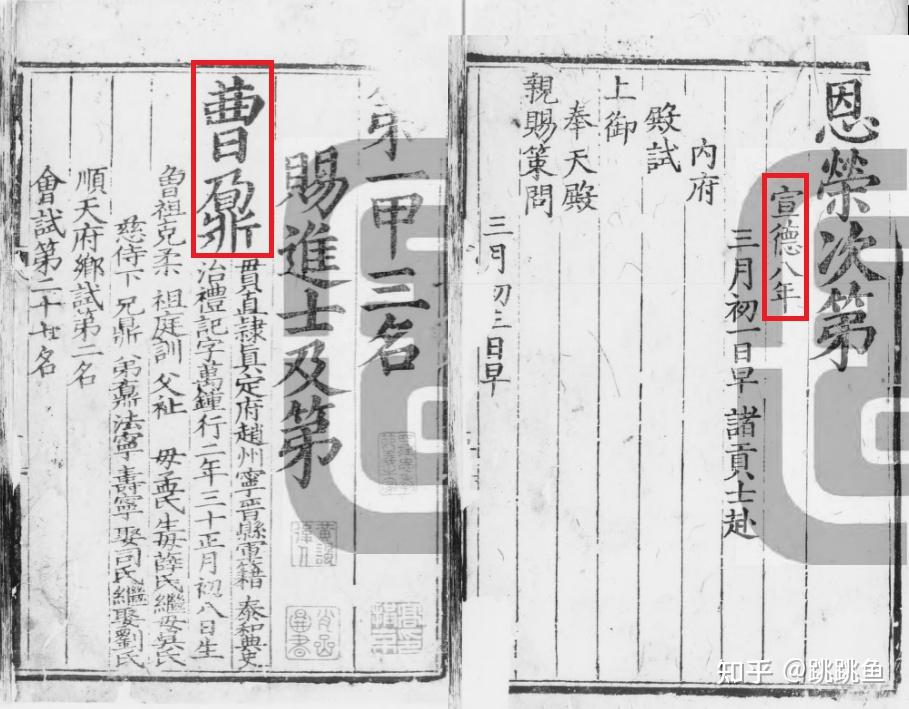 恩榮次第
宣德八年
三月初一日早 諸貢士赴
內府
殿試
上御
奉天殿
親賜策問
三月初三日早
第一甲三名
賜進士及第
曹鼐
貫直隸真定府趙州寧晉縣軍籍 泰和典史
治禮記字萬鍾行二年三十正月初八日生
曾祖克柔 祖庭訓 父祉 母孟氏生母薛氏繼母吳氏
慈侍下 兄鼎 弟鼎法寧壽寧 娶司氏繼娶劉氏
順天府鄉試第二名
會試第二十七名
知乎 @跳跳鱼